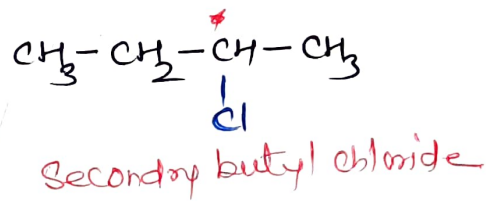 *
CH3-CH2-CH-CH3
|
Cl
Secondry butyl chloride